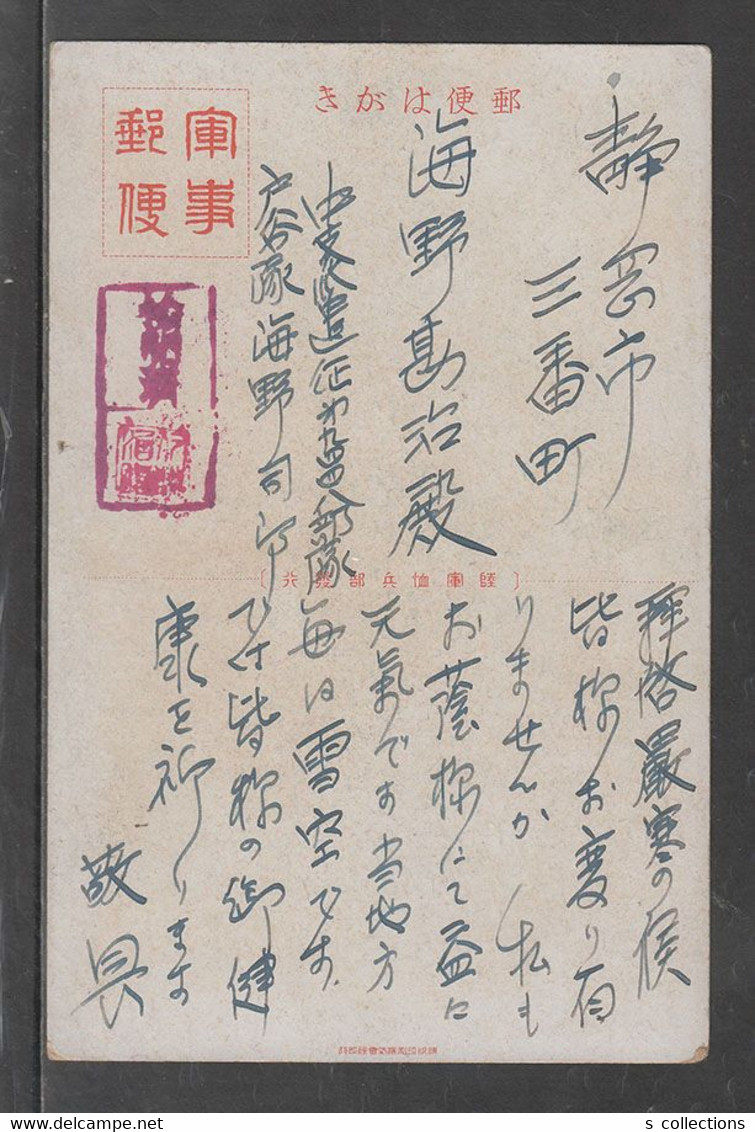 郵便はがき
軍事
郵便
静岡市
三番町
海野勘治殿
中支派遣征第九四八部隊
戸谷隊海野司郎
〔陸軍恤兵部發行〕
拜啓嚴寒の候
皆様お変り有
りませんか 私も
お蔭様にて益々
元氣です当地方
毎日雪空です
皆様の御健
康を祈ります
敬具
s collections